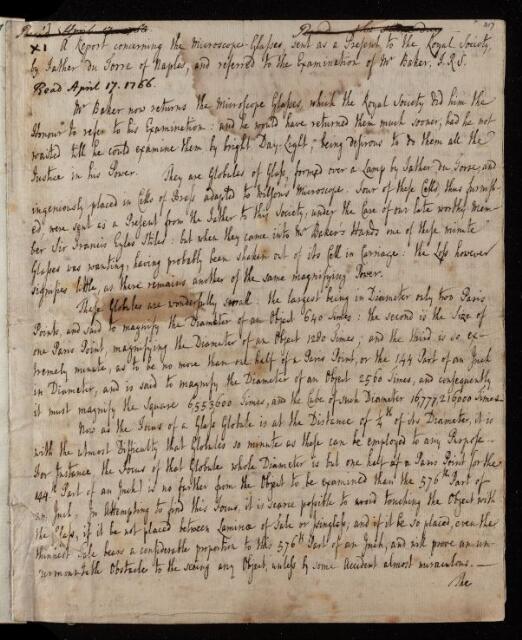 Read April 17. 1766
XI A Report concerning the Microscope-Glasses sent as a Present to the Royal Society,
by Father du Torre of Naples, and referred to the Examination of Mr Baker, F.R.S.
Read April 17. 1766.
Mr Baker now returns the Microscope Glasses, which the Royal Society did him the
Honour to refer to his Examination: and he would have returned them much sooner, had he not
waited till he could examine them by bright Day-Light; being desirous to do them all the
Justice in his Power. They are Globules of Glass, formed over a Lamp by Father du Torre, and
ingeniously placed in Cells of Brass adapted to Willson's Microscope. Four of these Cells thus furnish-
ed were sent as a Present from the Father to this Society, under the Care of our late worthy Mem-
ber Sir Francis Eyles Stiles: but when they came into Mr Baker's Hands one of these minute
Glasses was wanting, having probably been shaken out of its Cell in Carriage: the Loss however
signifies little, as there remains another of the same magnifying Power.
These Globules are wonderfully small: the largest being in Diameter only two Paris
Points, and said to magnify the Diameter of an Object 640 Times: the second is the Size of
one Paris Point, magnifying the Diameter of an Object 1280 Times; and the third is so ex-
tremely minute, as to be no more than one half of a Paris Point, or the 144 Part of an Inch
in Diameter, and is said to magnify the Diameter of an Object 2560 Times, and consequently
it must magnify the Square 6553600 Times, and the Cube of such Diameter 16777216000 Times.
Now as the Focus of a Glass Globule is at the Distance of 4th of its Diameter, it is
with the utmost Difficulty that Globules so minute as these can be employed to any Purpose.
For instance the Focus of that Globule whose Diameter is but one half of a Paris Point (or the
144th Part of an Inch) is no farther from the Object to be examined than the 576th Part of
an Inch. In attempting to find this Focus, it is scarce possible to avoid touching the Object with
the Glass, if it be not placed between Laminæ of Talc or Isinglass, and if it be so placed, even the
thinnest Talc bears a considerable proportion to this 576th Part of an Inch, and will prove an un-
surmountable Obstacle to the seeing any Object, unless by some Accident almost miraculous.
The